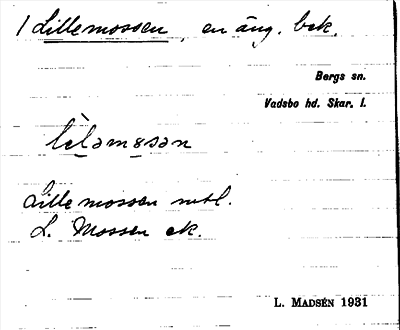 1 Lillemossen, en äng. bek.
Bergs sn.
Vadsbo hd. Skar. l.
Lille mossen mtl.
L. Mossen ek.
L. MADSÉN 1931